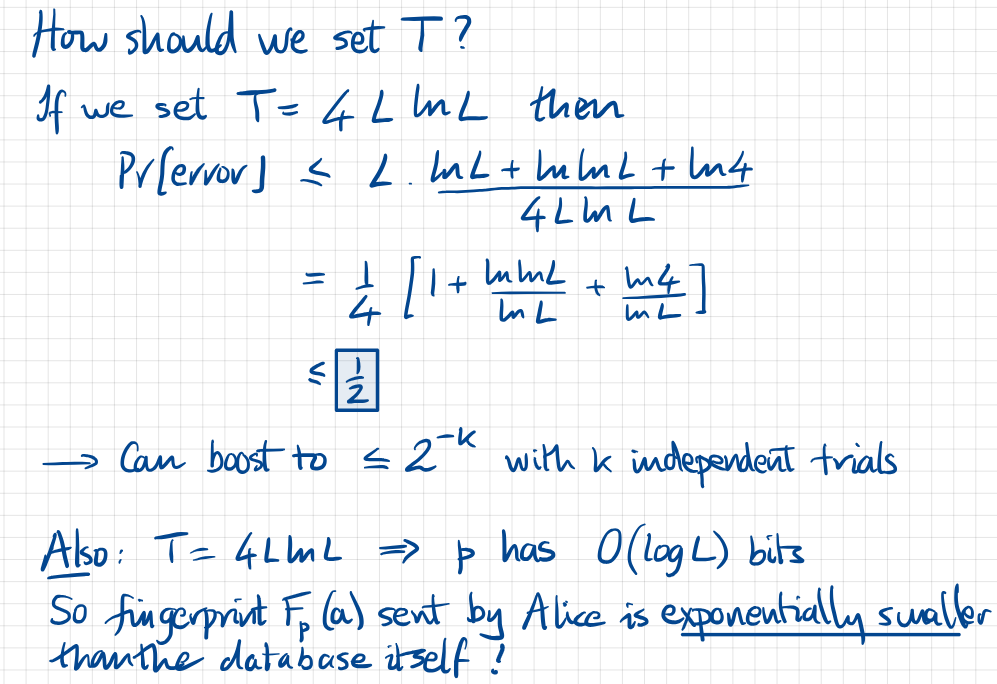 How should we set T?
If we set T = 4 L ln L then
Pr[error] ≤ L · (ln L + ln ln L + ln 4) / (4 L ln L)
= 1/4 [1 + (ln ln L)/(ln L) + (ln 4)/(ln L)]
≤ 1/2
→ Can boost to ≤ 2^{-k} with k independent trials
Also: T = 4 L ln L ⇒ p has O(log L) bits
So fingerprint F_p(a) sent by Alice is exponentially smaller
than the database itself!